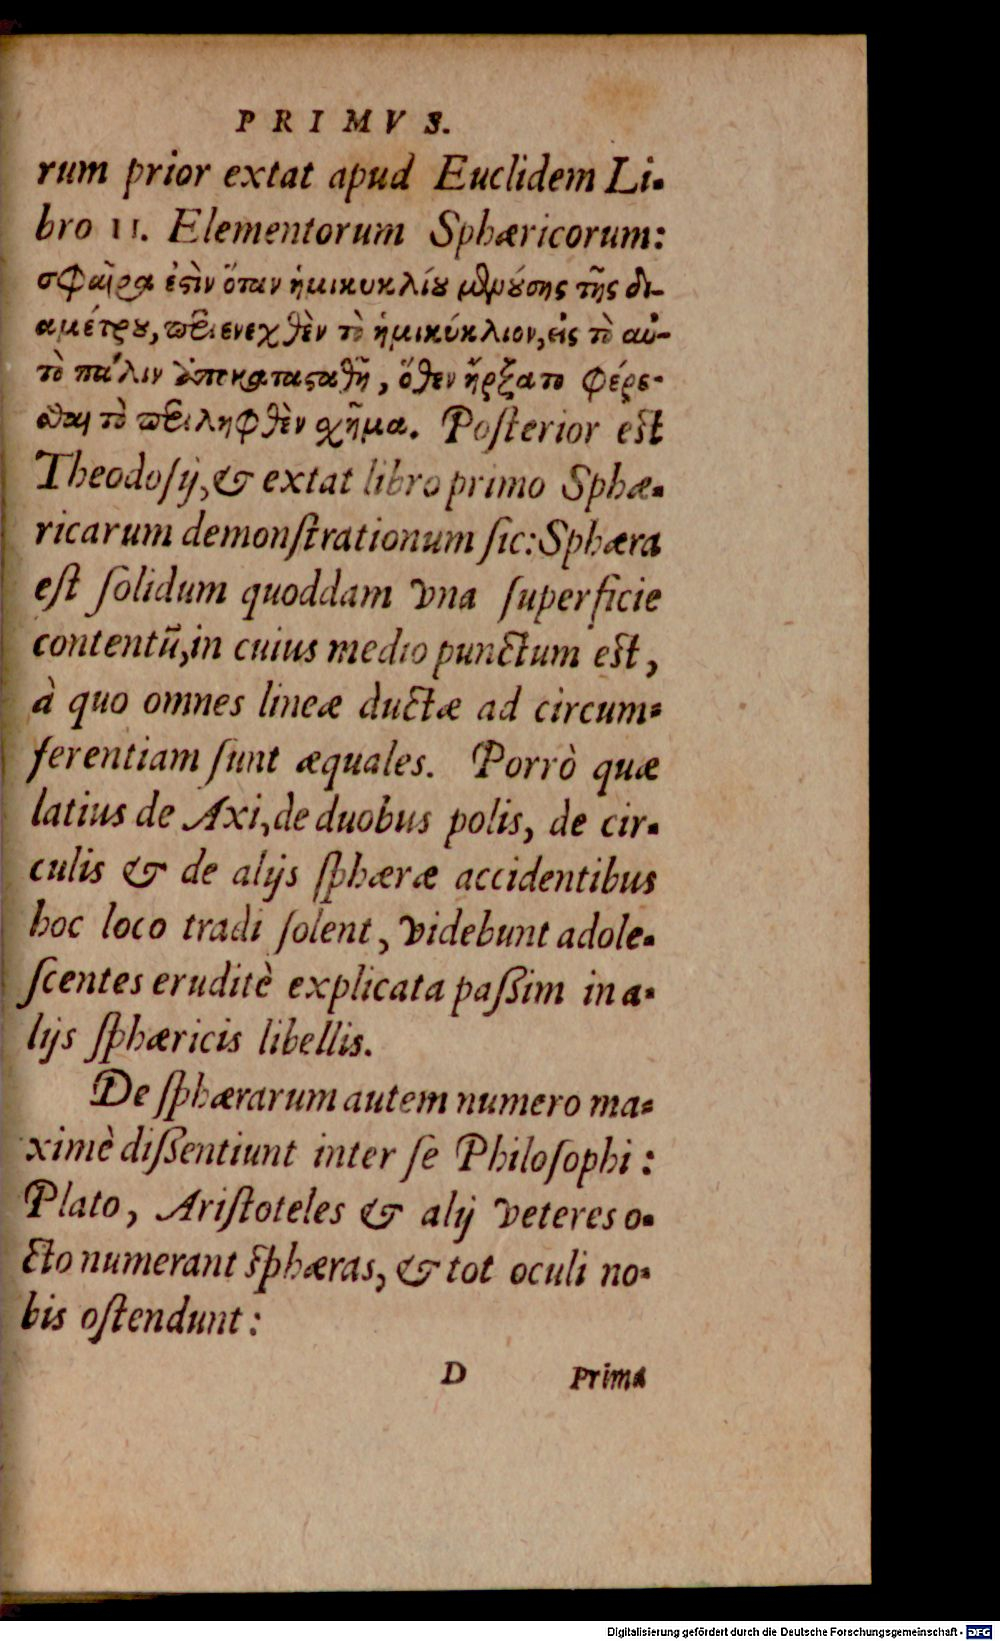 PRIMVS.
rum prior extat apud Euclidem Li-
bro 11. Elementorum Sphæricorum:
σφαῖρα ἐϛὶν ὅταν ἡμικυκλίου μενούσης τῆς δι-
αμέτρου, περιενεχθὲν τὸ ἡμικύκλιον, εἰς τὸ αὐ-
τὸ πάλιν ἀποκαταϛαθῇ, ὅθεν ἤρξατο φέρε-
σθαι τὸ περιληφθὲν σχῆμα. Poſterior eſt
Theodoſij, & extat libro primo Sphæ-
ricarum demonſtrationum ſic: Sphæra
eſt ſolidum quoddam vna ſuperficie
contentũ, in cuius medio punctum eſt,
à quo omnes lineæ ductæ ad circum-
ferentiam ſunt æquales. Porrò quæ
latius de Axi, de duobus polis, de cir-
culis & de alijs ſphæræ accidentibus
hoc loco tradi ſolent, videbunt adole-
ſcentes eruditè explicata paßim in a-
lijs ſphæricis libellis.
De ſphærarum autem numero ma-
ximè dißentiunt inter ſe Philoſophi:
Plato, Ariſtoteles & alij veteres o-
cto numerant ſphæras, & tot oculi no-
bis oſtendunt:
D Prima
Digitalisierung gefördert durch die Deutsche Forschungsgemeinschaft - DFG